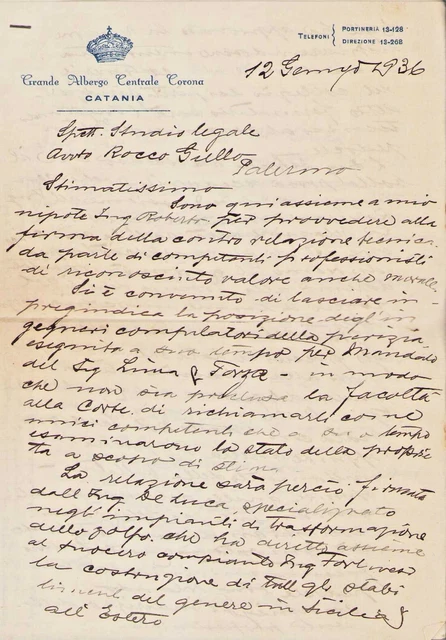 TELEFONI { PORTINERIA 13-128
DIREZIONE 13-268
Grande Albergo Centrale Corona
CATANIA
12 1936
Spett. Studio legale
Avvto Rocco Gullo
Palermo
Stimatissimo
Sono qui assieme a mio
nipote Ing Roberto per provvedere alla
firma della contro relazione tecnica
da parte di competenti professionisti
di riconosciuto valore anche morale.
Si è convenuto di lasciare im
pregiudica la posizione degl'in
gegneri compilatori della perizia
eseguita a suo tempo per mandato
del Sig Lima & - in modo
che non sia preclusa la facoltà
alla Corte di richiamarli come
unici competenti che a suo tempo
esaminarono lo stato della proprie
ta a scopo di stima
La relazione sarà perciò firmata
dall'Ing De Luca, specializzato
negl'impianti di trasformazione
dello zolfo, che ha diretto assieme
al suocero compianto Ing
la costruzione di tutti gli stabi
limenti del genere in Sicilia &
all'Estero